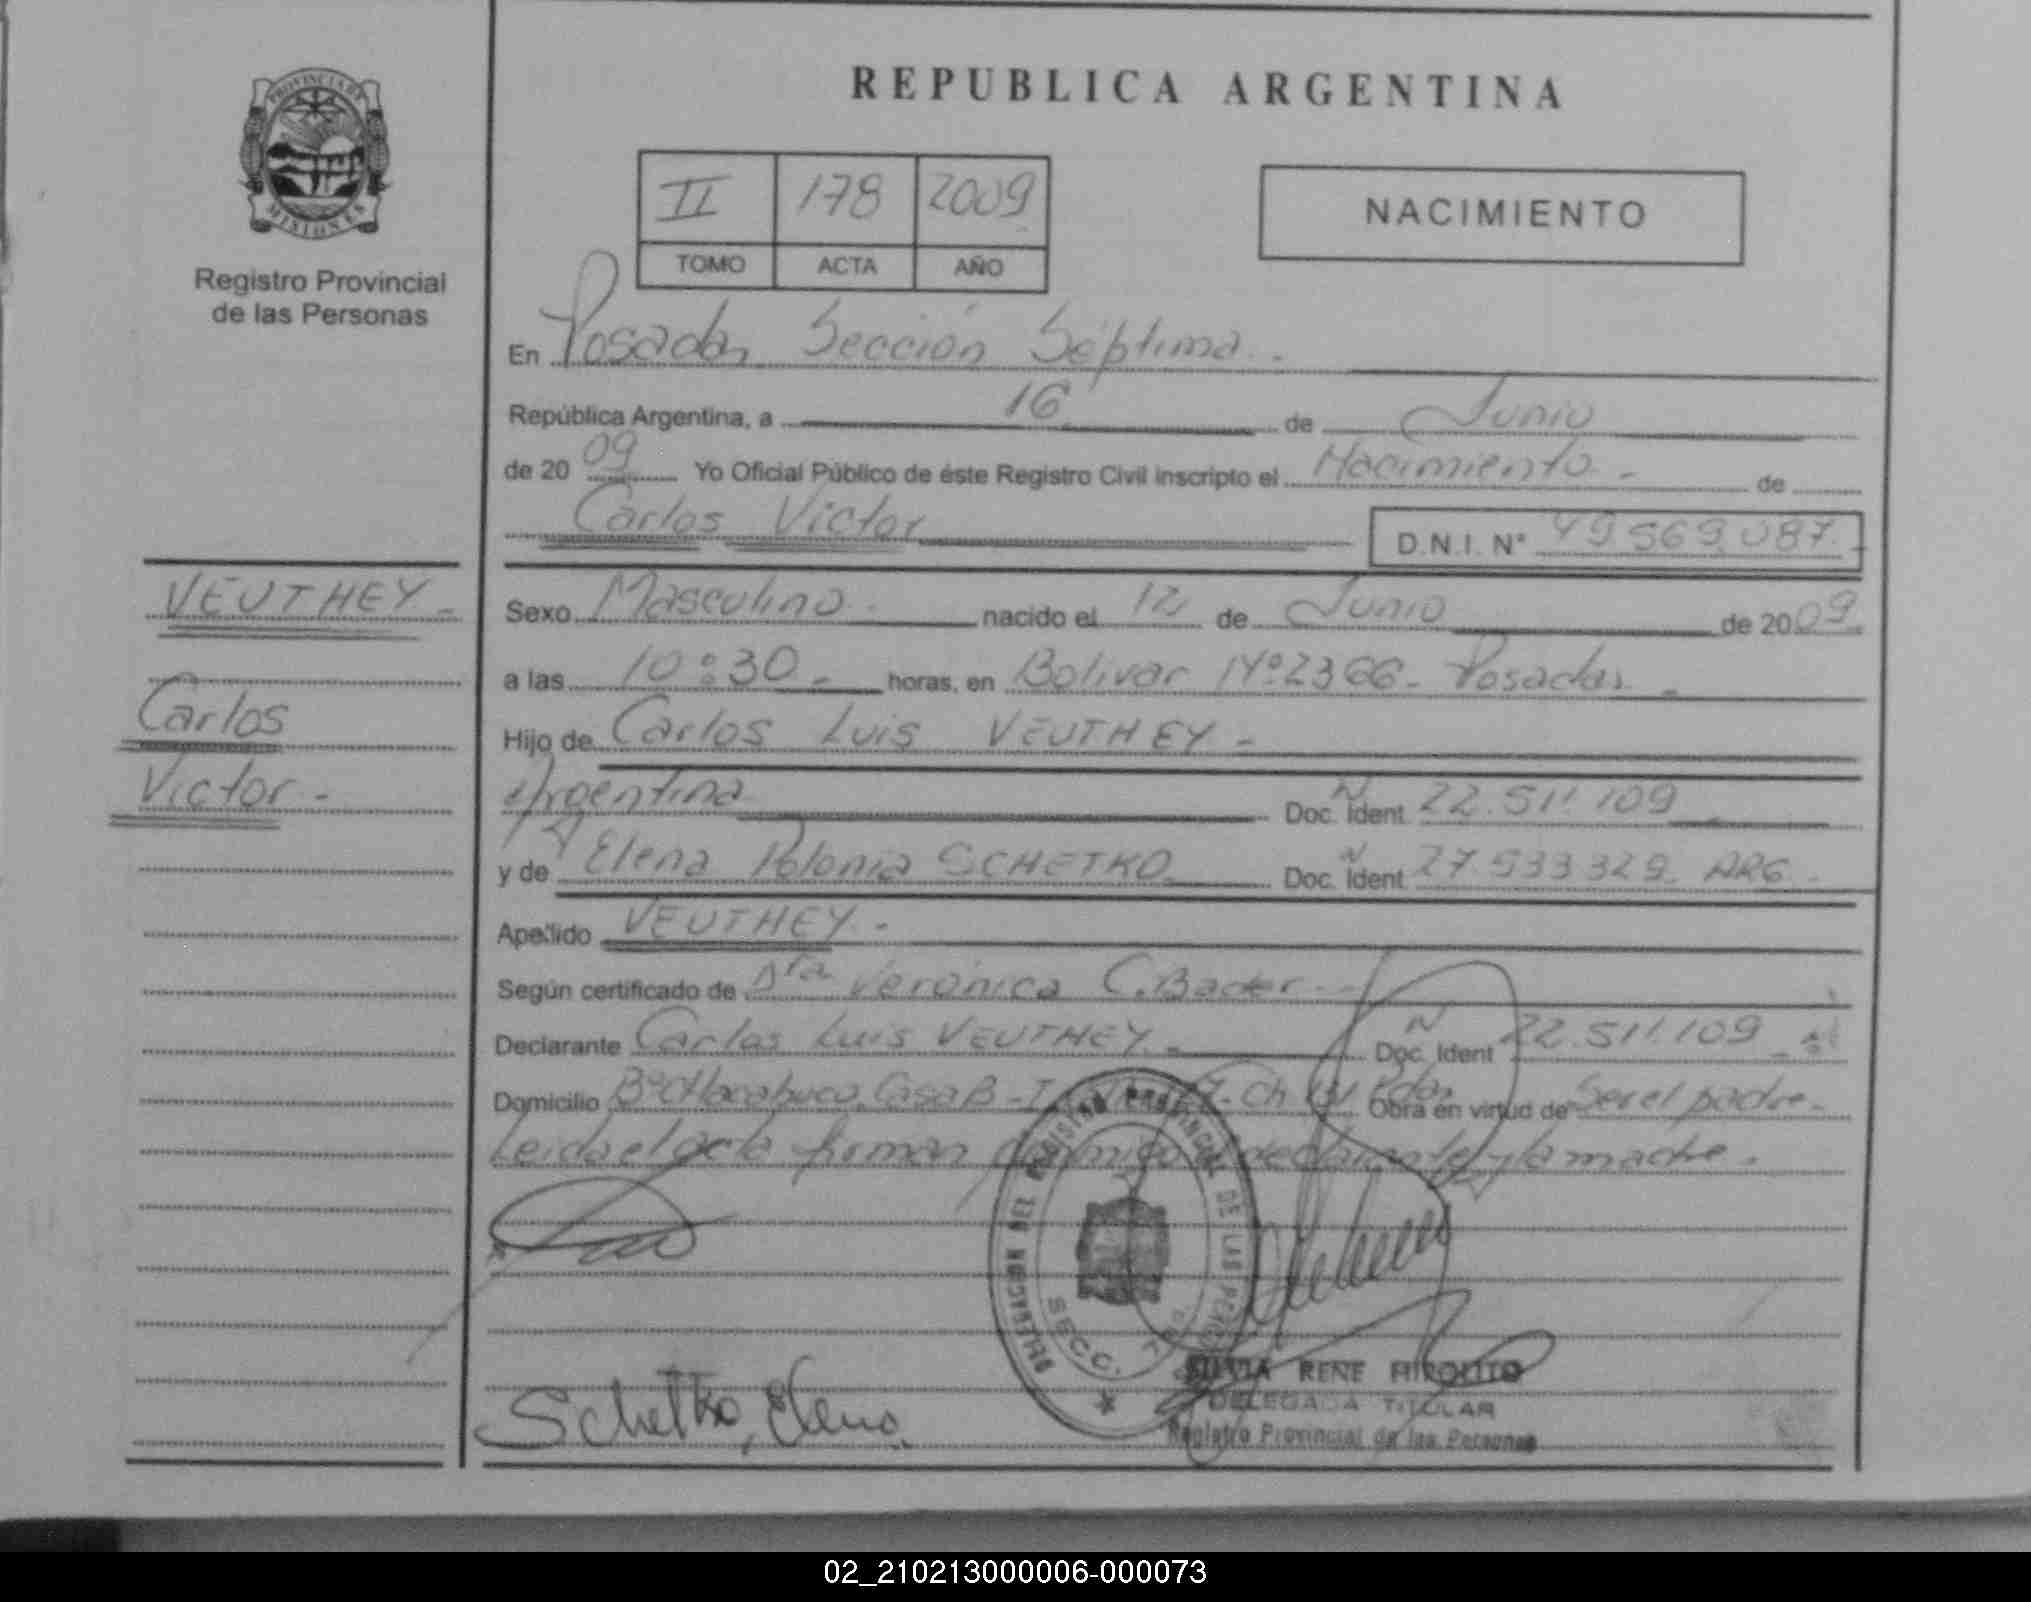 PROVINCIA DE
MISIONES
Registro Provincial
de las Personas
VEUTHEY -
Carlos
Victor -
REPUBLICA ARGENTINA
II 178 2009
TOMO ACTA AÑO
NACIMIENTO
En Posadas Sección Séptima.-
República Argentina, a 16 de Junio
de 20 09 Yo Oficial Público de éste Registro Civil inscripto el Nacimiento - de
Carlos Victor D.N.I. N° 49.569.087.-
Sexo Masculino. nacido el 12 de Junio de 20 09.
a las 10:30 - horas, en Bolivar Nº 2366 - Posadas -
Hijo de Carlos Luis VEUTHEY -
Argentina Doc. Ident. N 22.511.109
y de Elena Polonia SCHETKO Doc. Ident. N 27.533.329. ARG.-
Apellido VEUTHEY -
Según certificado de Dra Verónica C. Bader.-
Declarante Carlos Luis VEUTHEY - Doc. Ident N 22.511.109 -
Domicilio Bº Chacabuco, Casa B - Ch Pdas Obra en virtud de Ser el padre.-
Leida el acta firman conmigo el declarante y la madre.-
DELEGACION DEL REGISTRO PROVINCIAL DE LAS PERSONAS
SECC.
Schetko, Elena.
SILVIA RENE HIPOLITO
DELEGADA TITULAR
Registro Provincial de las Personas
02_210213000006-000073